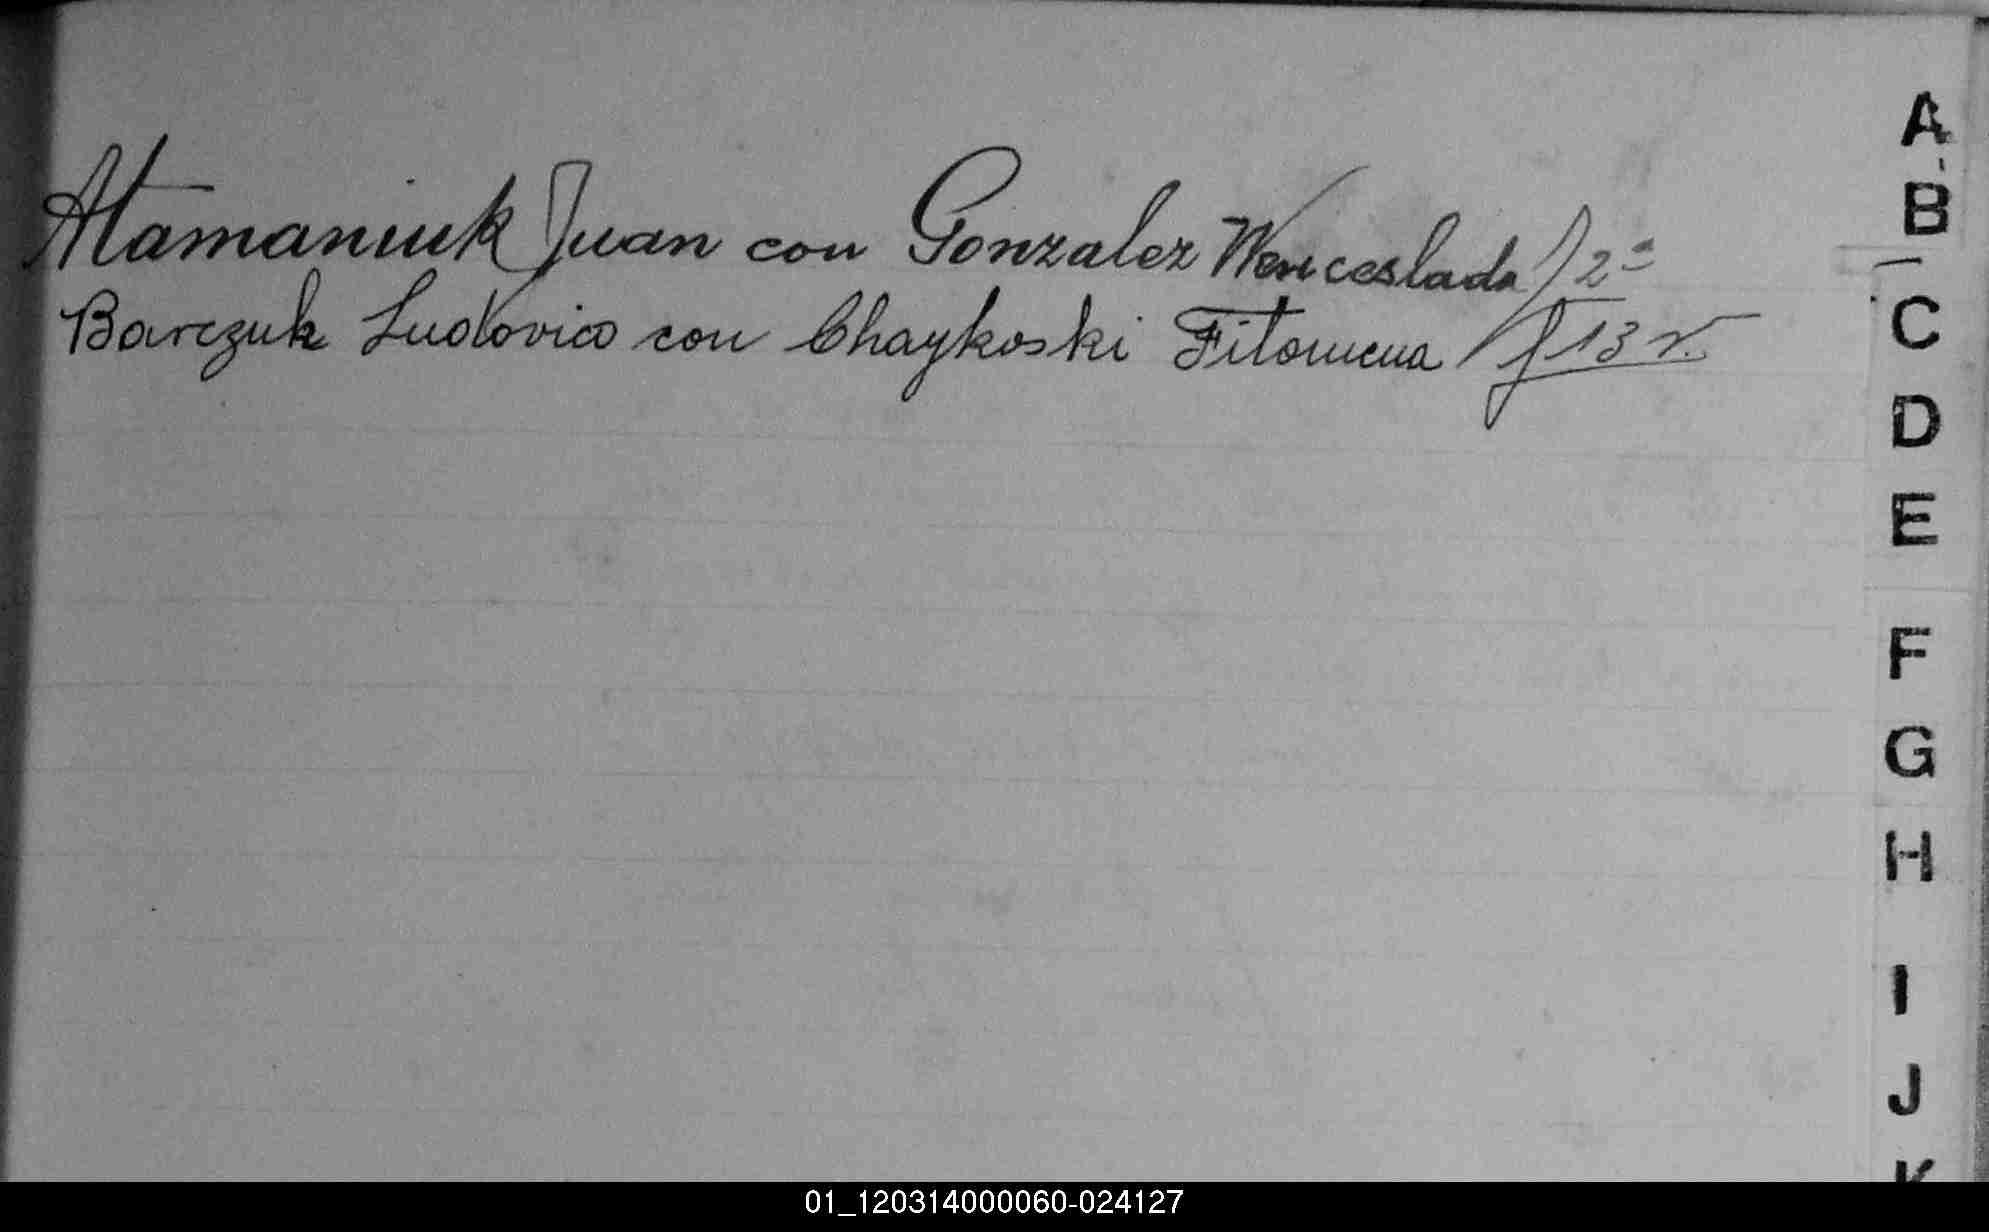 Atamaniuk Juan con Gonzalez Wenceslada f 2ª
Barczuk Ludovico con Chaykoski Filomena f 13 v.
A
B
C
D
E
F
G
H
I
J
K
01_120314000060-024127